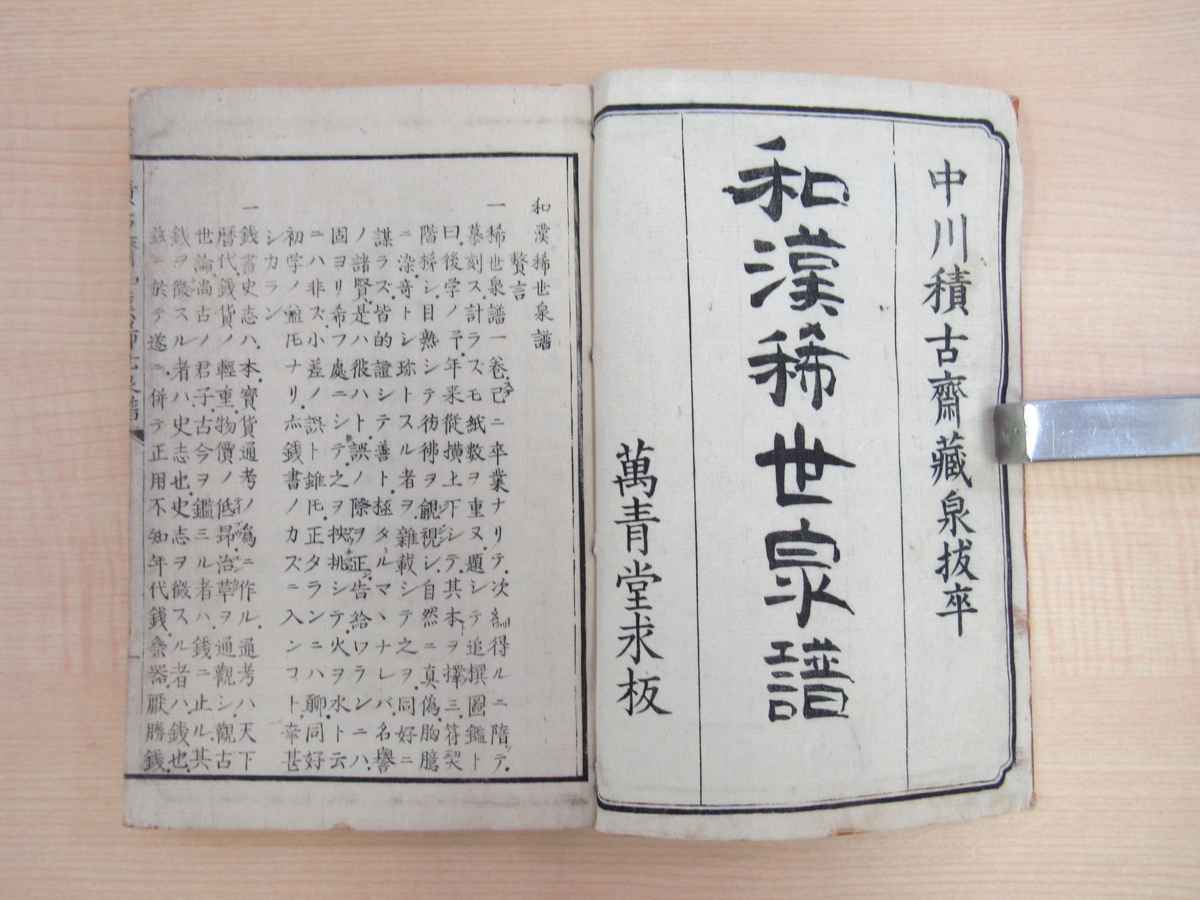 中川積古齋藏泉抜萃
和漢稀世泉譜
萬青堂求板
和漢稀世泉譜
贅言
一稀世泉譜一卷己ニ卒業ナリテ次刻得ルニ隨テ
摹刻ス計ラスモ紙数ヲ重ヌ題シテ追撰圖鑑ト
曰後学ノ予年来從横上下シテ其本ヲ擇三符契
階梯シ目熟シテ彷彿ヲ覰視シ自然ニ真偽胸臆
ニ染奇トシ珍トスル者ヲ雜載シテ之ヲ同好ニ
謀ラズ皆的證シテ善ト極タルマハナレバ名譽
ノ諸賢是ハ彼ハト誤ノ除ヲ正告給ワランニハ
固ヨリ希フ處ニシテ之ヲ挾挑シテ火ヲ水ト云
ニハ非ス小差ノ誤ト雖𪜈正タランニハ聊同好
初学ノ益𪜈ナリ杰銭書ノカズニ入ンコト幸甚
シカラン
一銭書史志ハ本寳貨通考ノ為ニ作ル通考ハ天下
暦代銭貨ノ輕重物價ノ低昂治草ヲ通觀シ觀古
世論尚古ノ君子古今ヲ鑑ミル者ハ銭ニ止ル其
銭ヲ徴スル者ハ史志也史志ヲ徴スル者ハ銭也
茲ニ於テ遂ニ併テ正用不知年代銭叅器厭勝銭